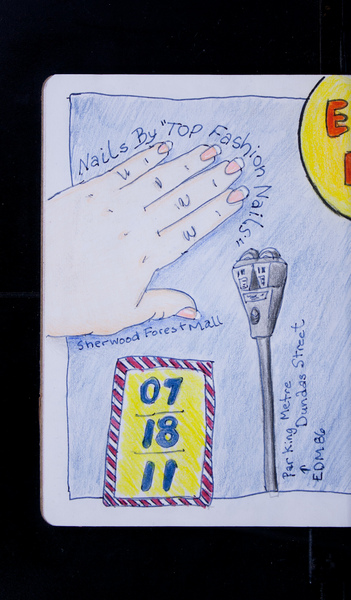 Nails By "Top Fashion Nails"
E
Sherwood Forest Mall
07
18
11
Par King Metre
Dundas Street
EDM 86